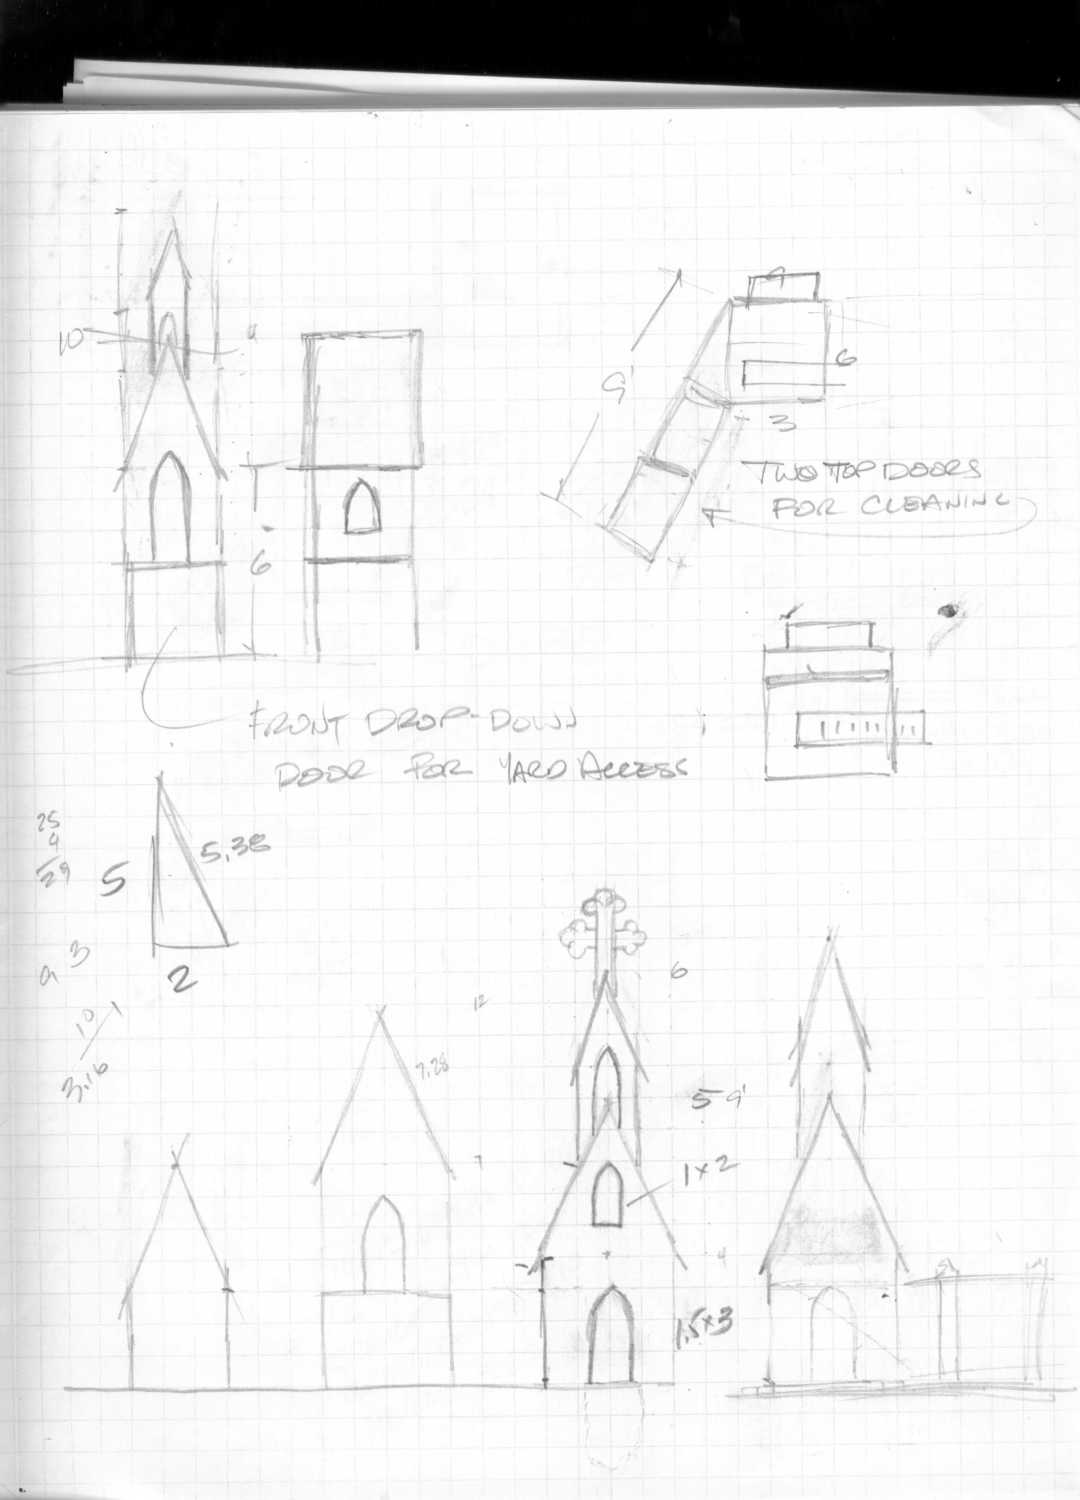 10
9'
6
3
TWO TOP DOORS
FOR CLEANING
6
FRONT DROP-DOWN
DOOR FOR YARD ACCESS
25
4
29
5
5.38
3
9
2
10
3.16
12
7.28
6
5 9'
7
1x2
4
1.5x3